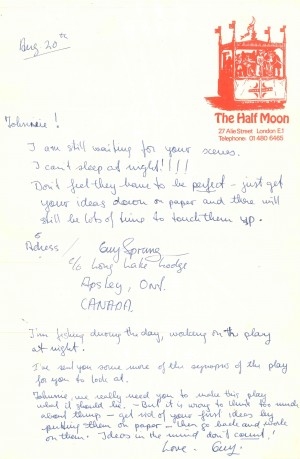 Aug. 20th
The Half Moon
27 Alie Street London E.1
Telephone 01-480 6465
Johnnie!
I am still waiting for your scenes.
I can't sleep at night!!!!
Don't feel they have to be perfect - just get
your ideas down on paper and there will
still be lots of time to touch them up.
Adress / Guy Sprung
c/o Long Lake Lodge
Apsley, Ont.
CANADA.
I'm fishing during the day, working on the play
at night.
I've sent you some more of the synopsis of the play
for you to look at.
Johnnie, we really need you to make this play
what it should be. - But it is wrong to think too much
about things - get rid of your first ideas by
putting them on paper - then go back and work
on them. Ideas in the mind don't count!
Love. Guy.